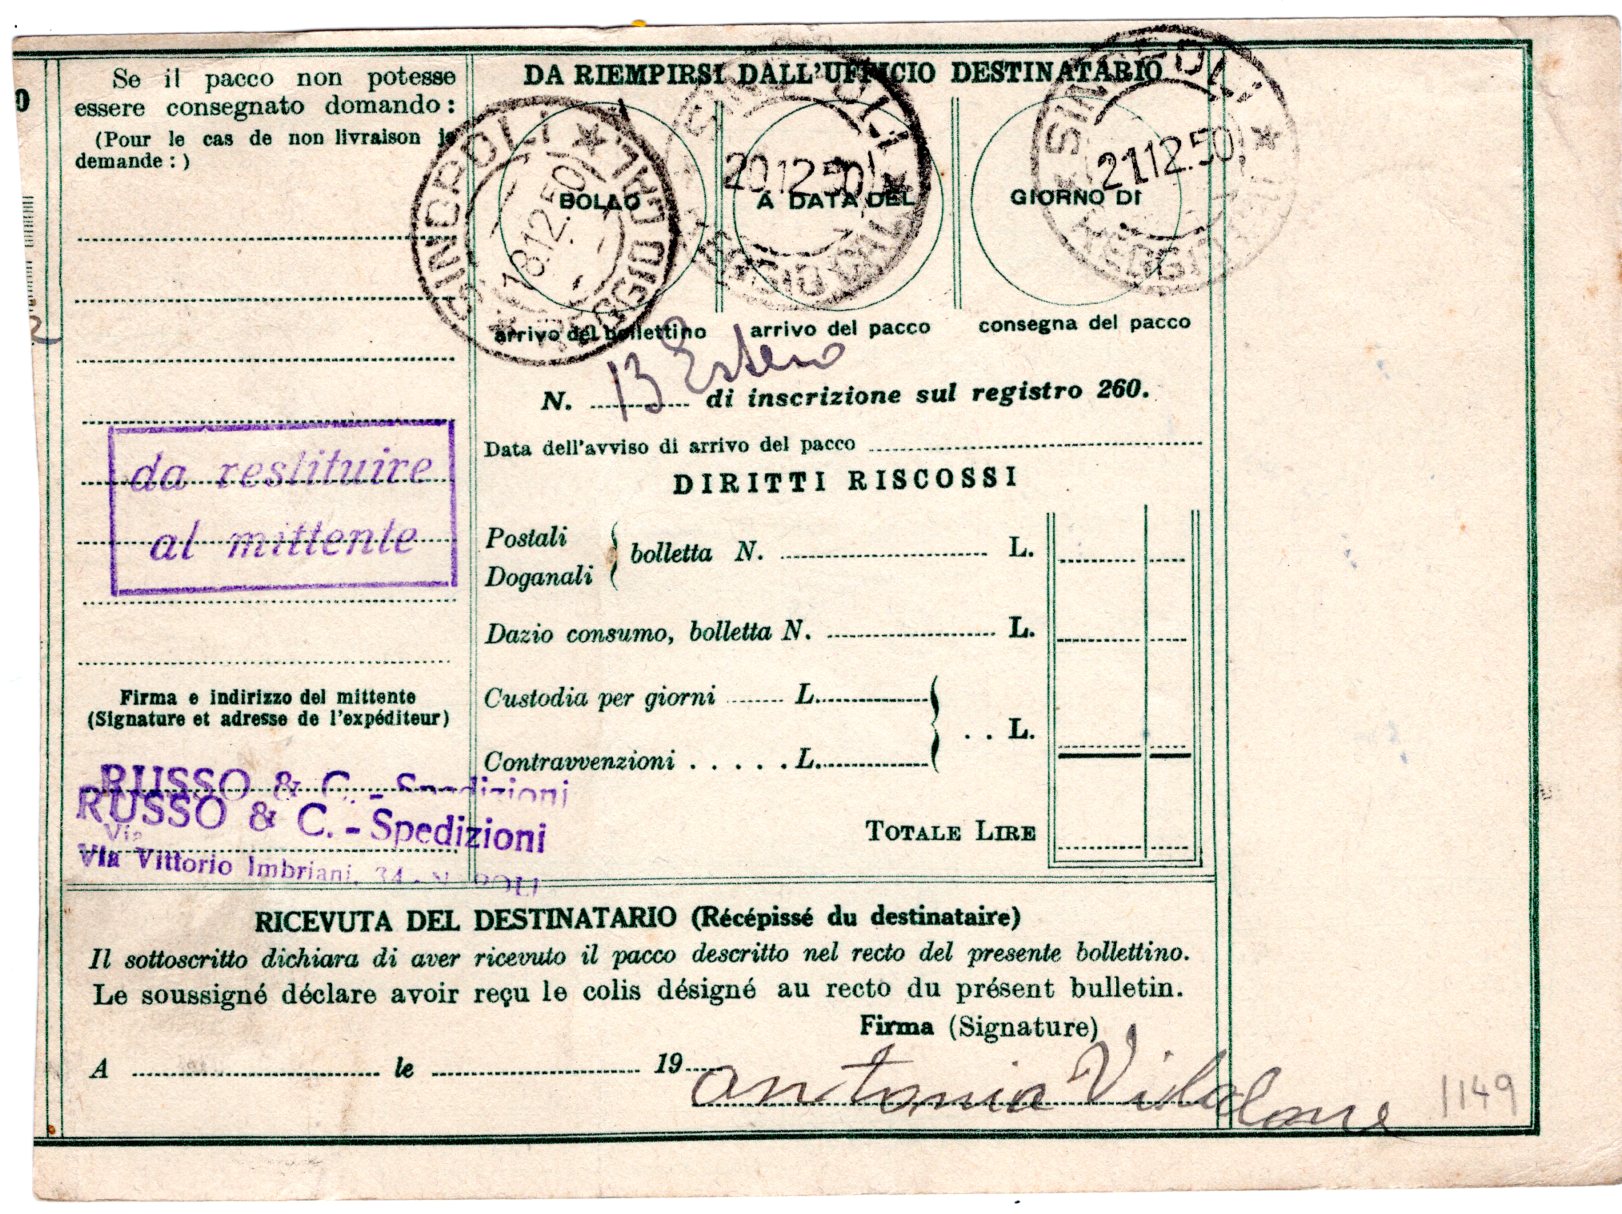 Se il pacco non potesse
essere consegnato domando:
(Pour le cas de non livraison je
demande:)
da restituire
al mittente
Firma e indirizzo del mittente
(Signature et adresse de l'expéditeur)
RUSSO & C. - Spedizioni
RUSSO & C. - Spedizioni
Via
Via Vittorio Imbriani, 34 - NAPOLI
DA RIEMPIRSI DALL'UFFICIO DESTINATARIO
SINOPOLI * REGGIO CAL. *
18.12.50
SINOPOLI * REGGIO CAL. *
20.12.50
SINOPOLI * REGGIO CAL. *
21.12.50
BOLLO A DATA DEL GIORNO DI
arrivo del bollettino arrivo del pacco consegna del pacco
N. 13 Estero di inscrizione sul registro 260.
Data dell'avviso di arrivo del pacco
DIRITTI RISCOSSI
Postali
Doganali bolletta N. L.
Dazio consumo, bolletta N. L.
Custodia per giorni L.
. . L.
Contravvenzioni . . . . . L.
TOTALE LIRE
RICEVUTA DEL DESTINATARIO (Récépissé du destinataire)
Il sottoscritto dichiara di aver ricevuto il pacco descritto nel recto del presente bollettino.
Le soussigné déclare avoir reçu le colis désigné au recto du présent bulletin.
Firma (Signature)
A le 19
Antonia
1149